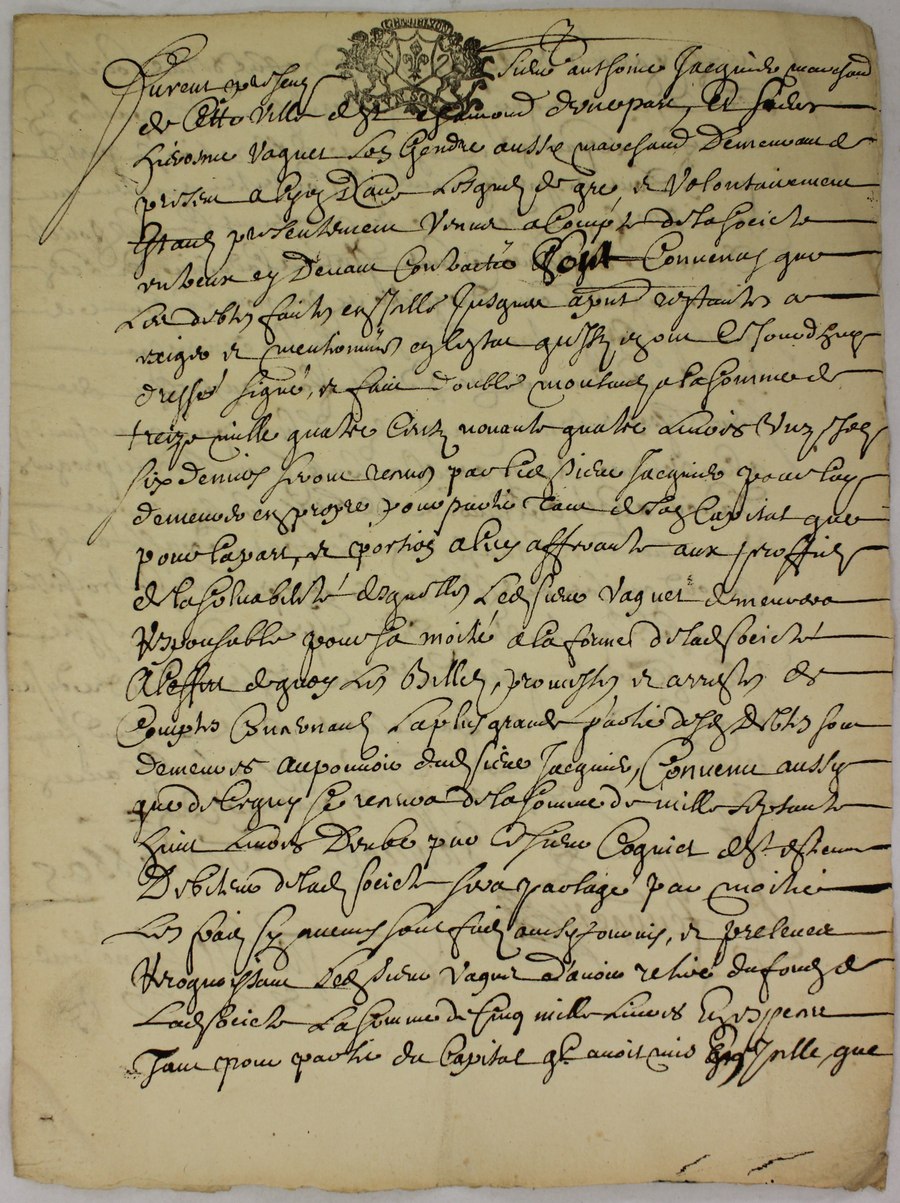 Furent presens Sieur anthoine Jacquier marchand
de Cette Ville de St chamond d'une part, Et Sieur
hierosme Vaguet son Gendre aussy marchand Demeurant de
present a Lyon D'autre Lesquels de gré, et Volontairement
Estant presentement Venus a Compte de la societé
entr'eux cy Devant Contractée Sont Convenus que
Les debtes faites en Icelle Jusques a restantes a
exiger et mentionnées en l'estat qui en a esté ce jourd'huy
dressé signé, et fait double montant a la somme de
treize mille quatre Cents nonante quatre Livres Un sol
six deniers seront remis par Led Sieur Jacquier pour luy
demeurer en propre pour partie Tant de son Capital que
pour la part, et portion a luy afferante aux proffits
de la solvabilité desquelles Led sieur Vaguet demeurera
Responsable pour sa moitié a la forme de lad societé
A l'effet de quoy Les Billets, promesses et arrestés de
Comptes Concernant La plus grande partie desd Debtes sont
demeurés au pouvoir dud sieur Jacquier, Convenu aussy
que de ce qui se retirera de la somme de mille septante
huit Livres Deube par le sieur Coquet de St estienne
Debiteur de lad societé sera partagé par moitié
Les frais sy aucuns sont faits aussy fournis, et prelevés
Recognoissant Led sieur Vaguet d'avoir retiré du fonds de
Lad societé La somme de Cinq mille Livres En espece
Tant pour partie du Capital ql avoit mis En Icelle, que